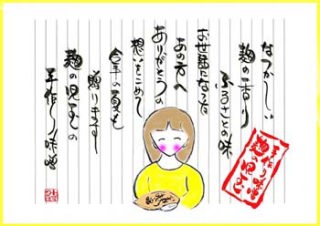 なつかしい
麹の香り
ふるさとの味
お世話になった
あの方へ
ありがとうの
想いをこめて
今年の夏も
贈ります
麹の児玉の
手作り味噌
手作り味噌
麹の児玉